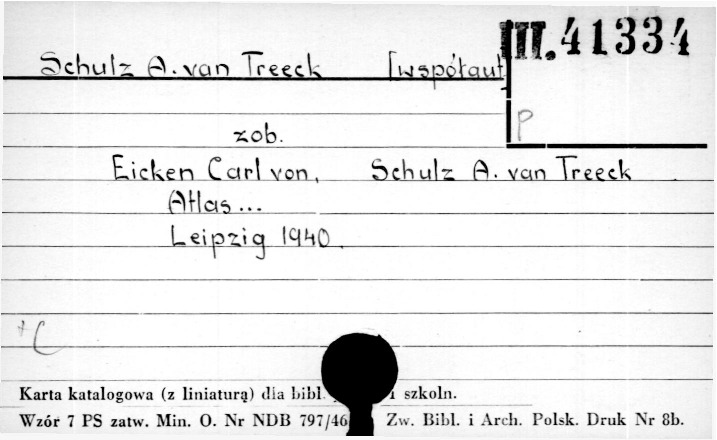 III. 41334
Schulz A. van Treeck [współaut
p
zob.
Eicken Carl von, Schulz A. van Treeck
Atlas...
Leipzig 1940.
+C
Karta katalogowa (z liniaturą) dla bibl. i szkoln.
Wzór 7 PS zatw. Min. O. Nr NDB 797/46 Zw. Bibl. i Arch. Polsk. Druk Nr 8b.